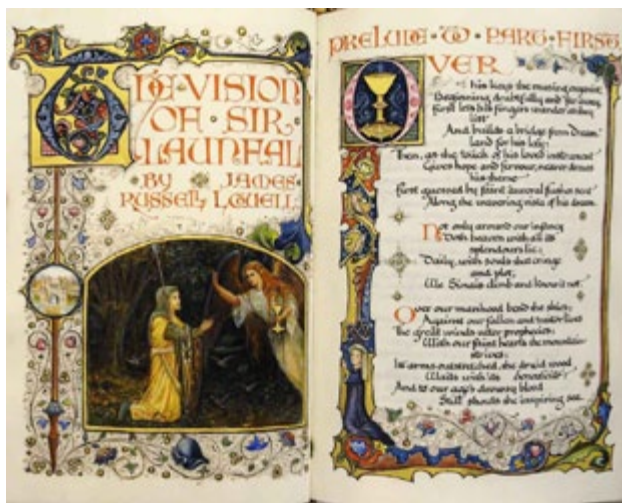 THE · VISION
OF · SIR ·
LAUNFAL
· BY · JAMES ·
RUSSELL LOWELL
PRELUDE · TO · PART · FIRST
OVER
his keys the musing organist,
Beginning doubtfully and far away,
First lets his fingers wander as they
list
And builds a bridge from Dream-
land for his lay:
Then, as the touch of his loved instrument
Gives hope and fervour, nearer draws
his theme
First guessed by faint auroral flushes sent
Along the wavering vista of his dream.
Not only around our infancy
Doth heaven with all its
splendours lie;
Daily, with souls that cringe
and plot,
We Sinais climb and know it not.
Over our manhood bend the skies;
Against our fallen and traitor lives
The great winds utter prophecies;
With our faint hearts the mountain
strives;
Its arms outstretched, the druid wood
Waits with its benedicite;
And to our age's drowsy blood
Still shouts the inspiring sea.